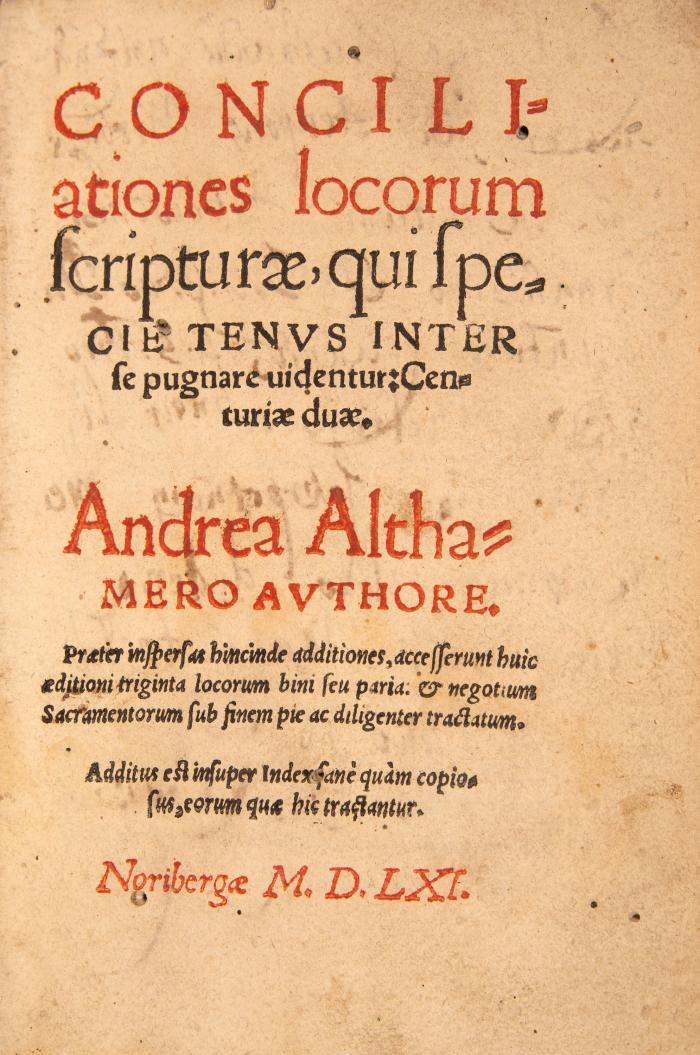 CONCILI⸗
ationes locorum
ſcripturæ, qui ſpe⸗
CIE TENVS INTER
ſe pugnare uidentur: Cen⸗
turiæ duæ.
Andrea Altha⸗
MERO AVTHORE.
Præter inſperſas hincinde additiones, acceſſerunt huic
æditioni triginta locorum bini ſeu paria: & negotium
Sacramentorum ſub finem pie ac diligenter tractatum.
Additus eſt inſuper Index ſanè quàm copio⸗
ſus, eorum quæ hic tractantur.
Noribergæ M. D. LXI.